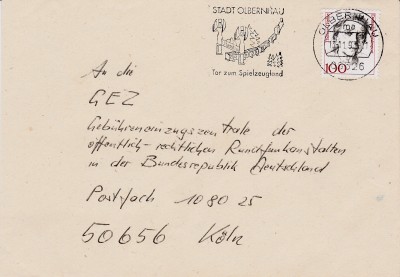 STADT OLBERNHAU
Tor zum Spielzeugland
OLBERNHAU
100
An die
GEZ
Gebühreneinzugszentrale der
öffentlich-rechtlichen Rundfunkanstalten
in der Bundesrepublik Deutschland
Postfach 10 80 25
50656 Köln